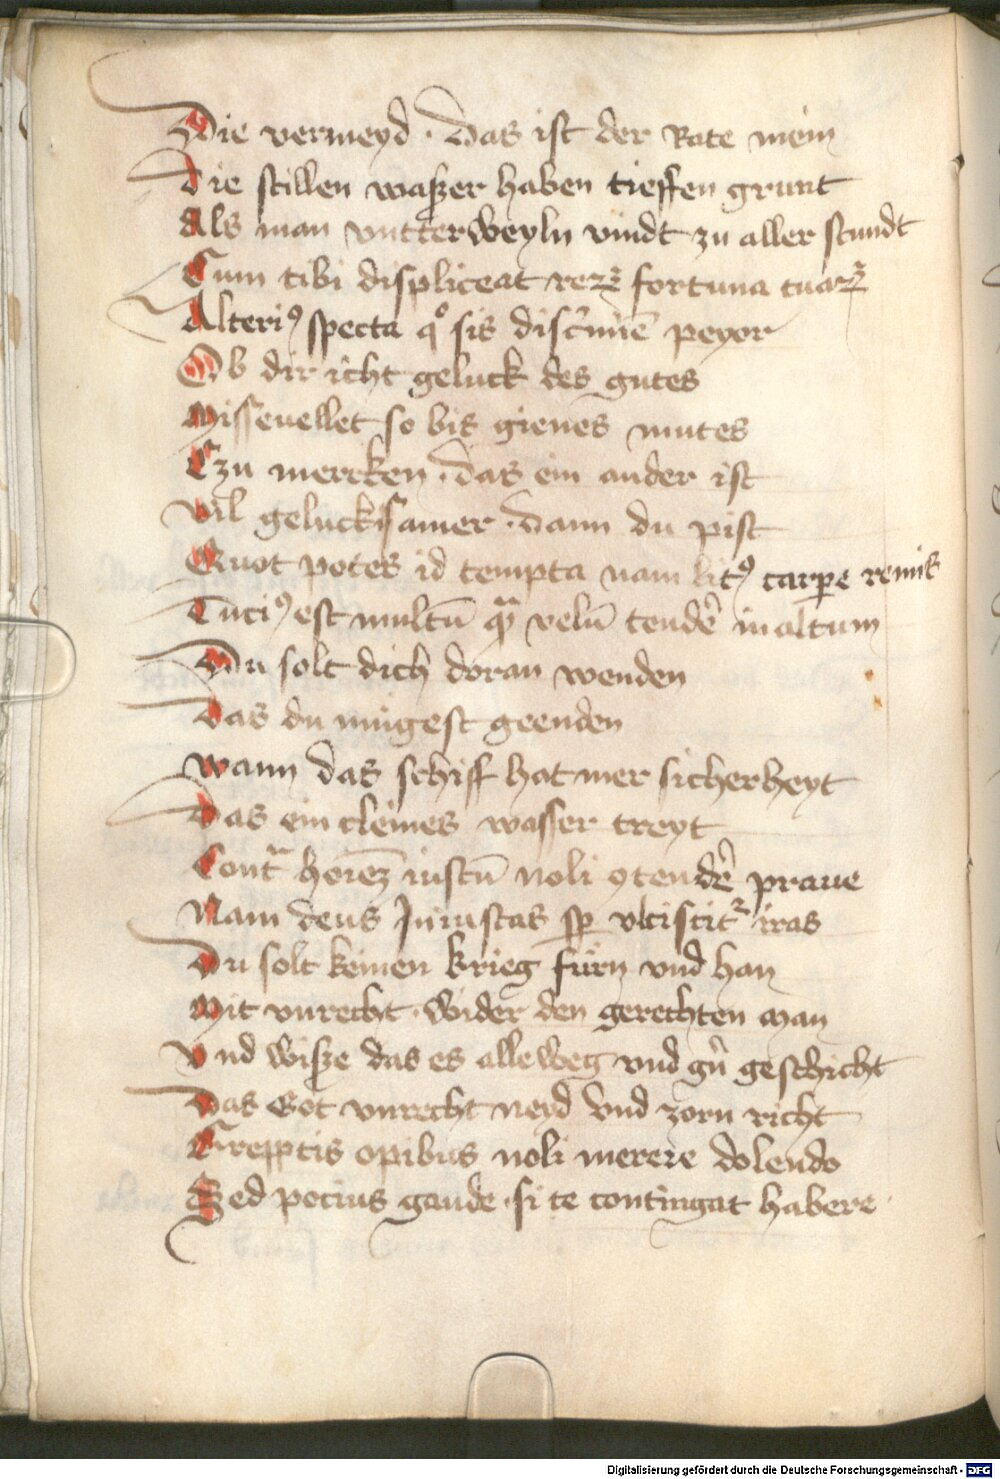 Die vermeyd · das ist der Rate mein
Die stillen waßer haben tieffen grunt
Als man vntterweyln vindt zu aller stundt
Cum tibi displiceat reꝝ fortuna tuaꝝ
Alteriꝰ specta qͦ sis discͥmīe peyor
Ob dir icht geluck des gutes
Missevellet so bis gienes mutes
Czu mercken · das ein ander ist
Vil gelucksamer · dann du pist
Quot potes id tempta nam litꝰ carpe remis
Tuciꝰ est multū qͣ velū tendē in altum
Du solt dich doran wenden
Das du mügest geenden
Wann das schiff hat mer sicherheyt
Das ein cleines wasser treyt
Contͣ hoīeꝫ iustū noli ꝯtendē praue
Nam deus Iniustas sꝑ vlciscitᷣ iras
Du solt keinen krieg fürn vnd han
Mit vnrecht · wider den gerechten man
Vnd wiße das es alleweg vnd gn̄ geschicht
Das Got vnrecht neyd vnd zorn richt
Ereptis opibus noli merere dolendo
Sed pocius gaude · si te contingat habere ·
Digitalisierung gefördert durch die Deutsche Forschungsgemeinschaft - DFG